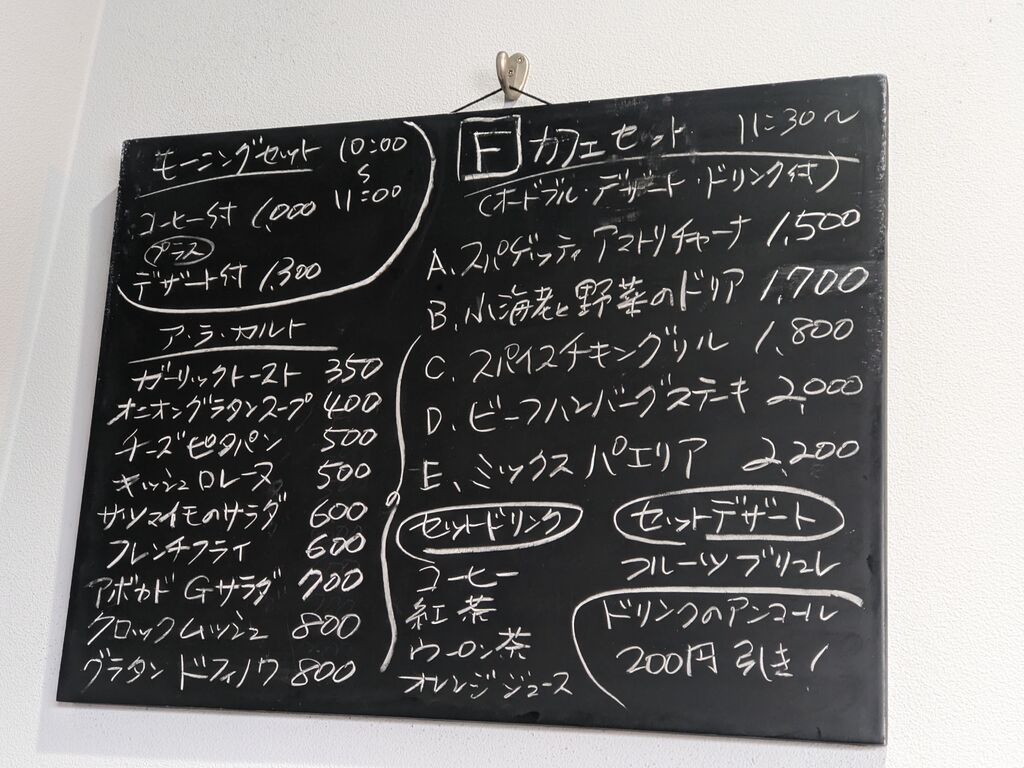 モーニングセット 10:00
〜
11:00
コーヒー付 1,000
プラス
デザート付 1,300
ア・ラ・カルト
ガーリックトースト 350
オニオングラタンスープ 400
チーズピタパン 500
キッシュロレーヌ 500
サツマイモのサラダ 600
フレンチフライ 600
アボカドGサラダ 700
クロックムッシュ 800
グラタンドフィノワ 800
F カフェセット 11:30〜
(オードブル・デザート・ドリンク付)
A、スパゲッティアマトリチャーナ 1,500
B、小海老と野菜のドリア 1,700
C、スパイスチキングリル 1,800
D、ビーフハンバーグステーキ 2,000
E、ミックスパエリア 2,200
セットドリンク
コーヒー
紅茶
ウーロン茶
オレンジジュース
セットデザート
フルーツブリュレ
ドリンクのアンコール
200円引き!